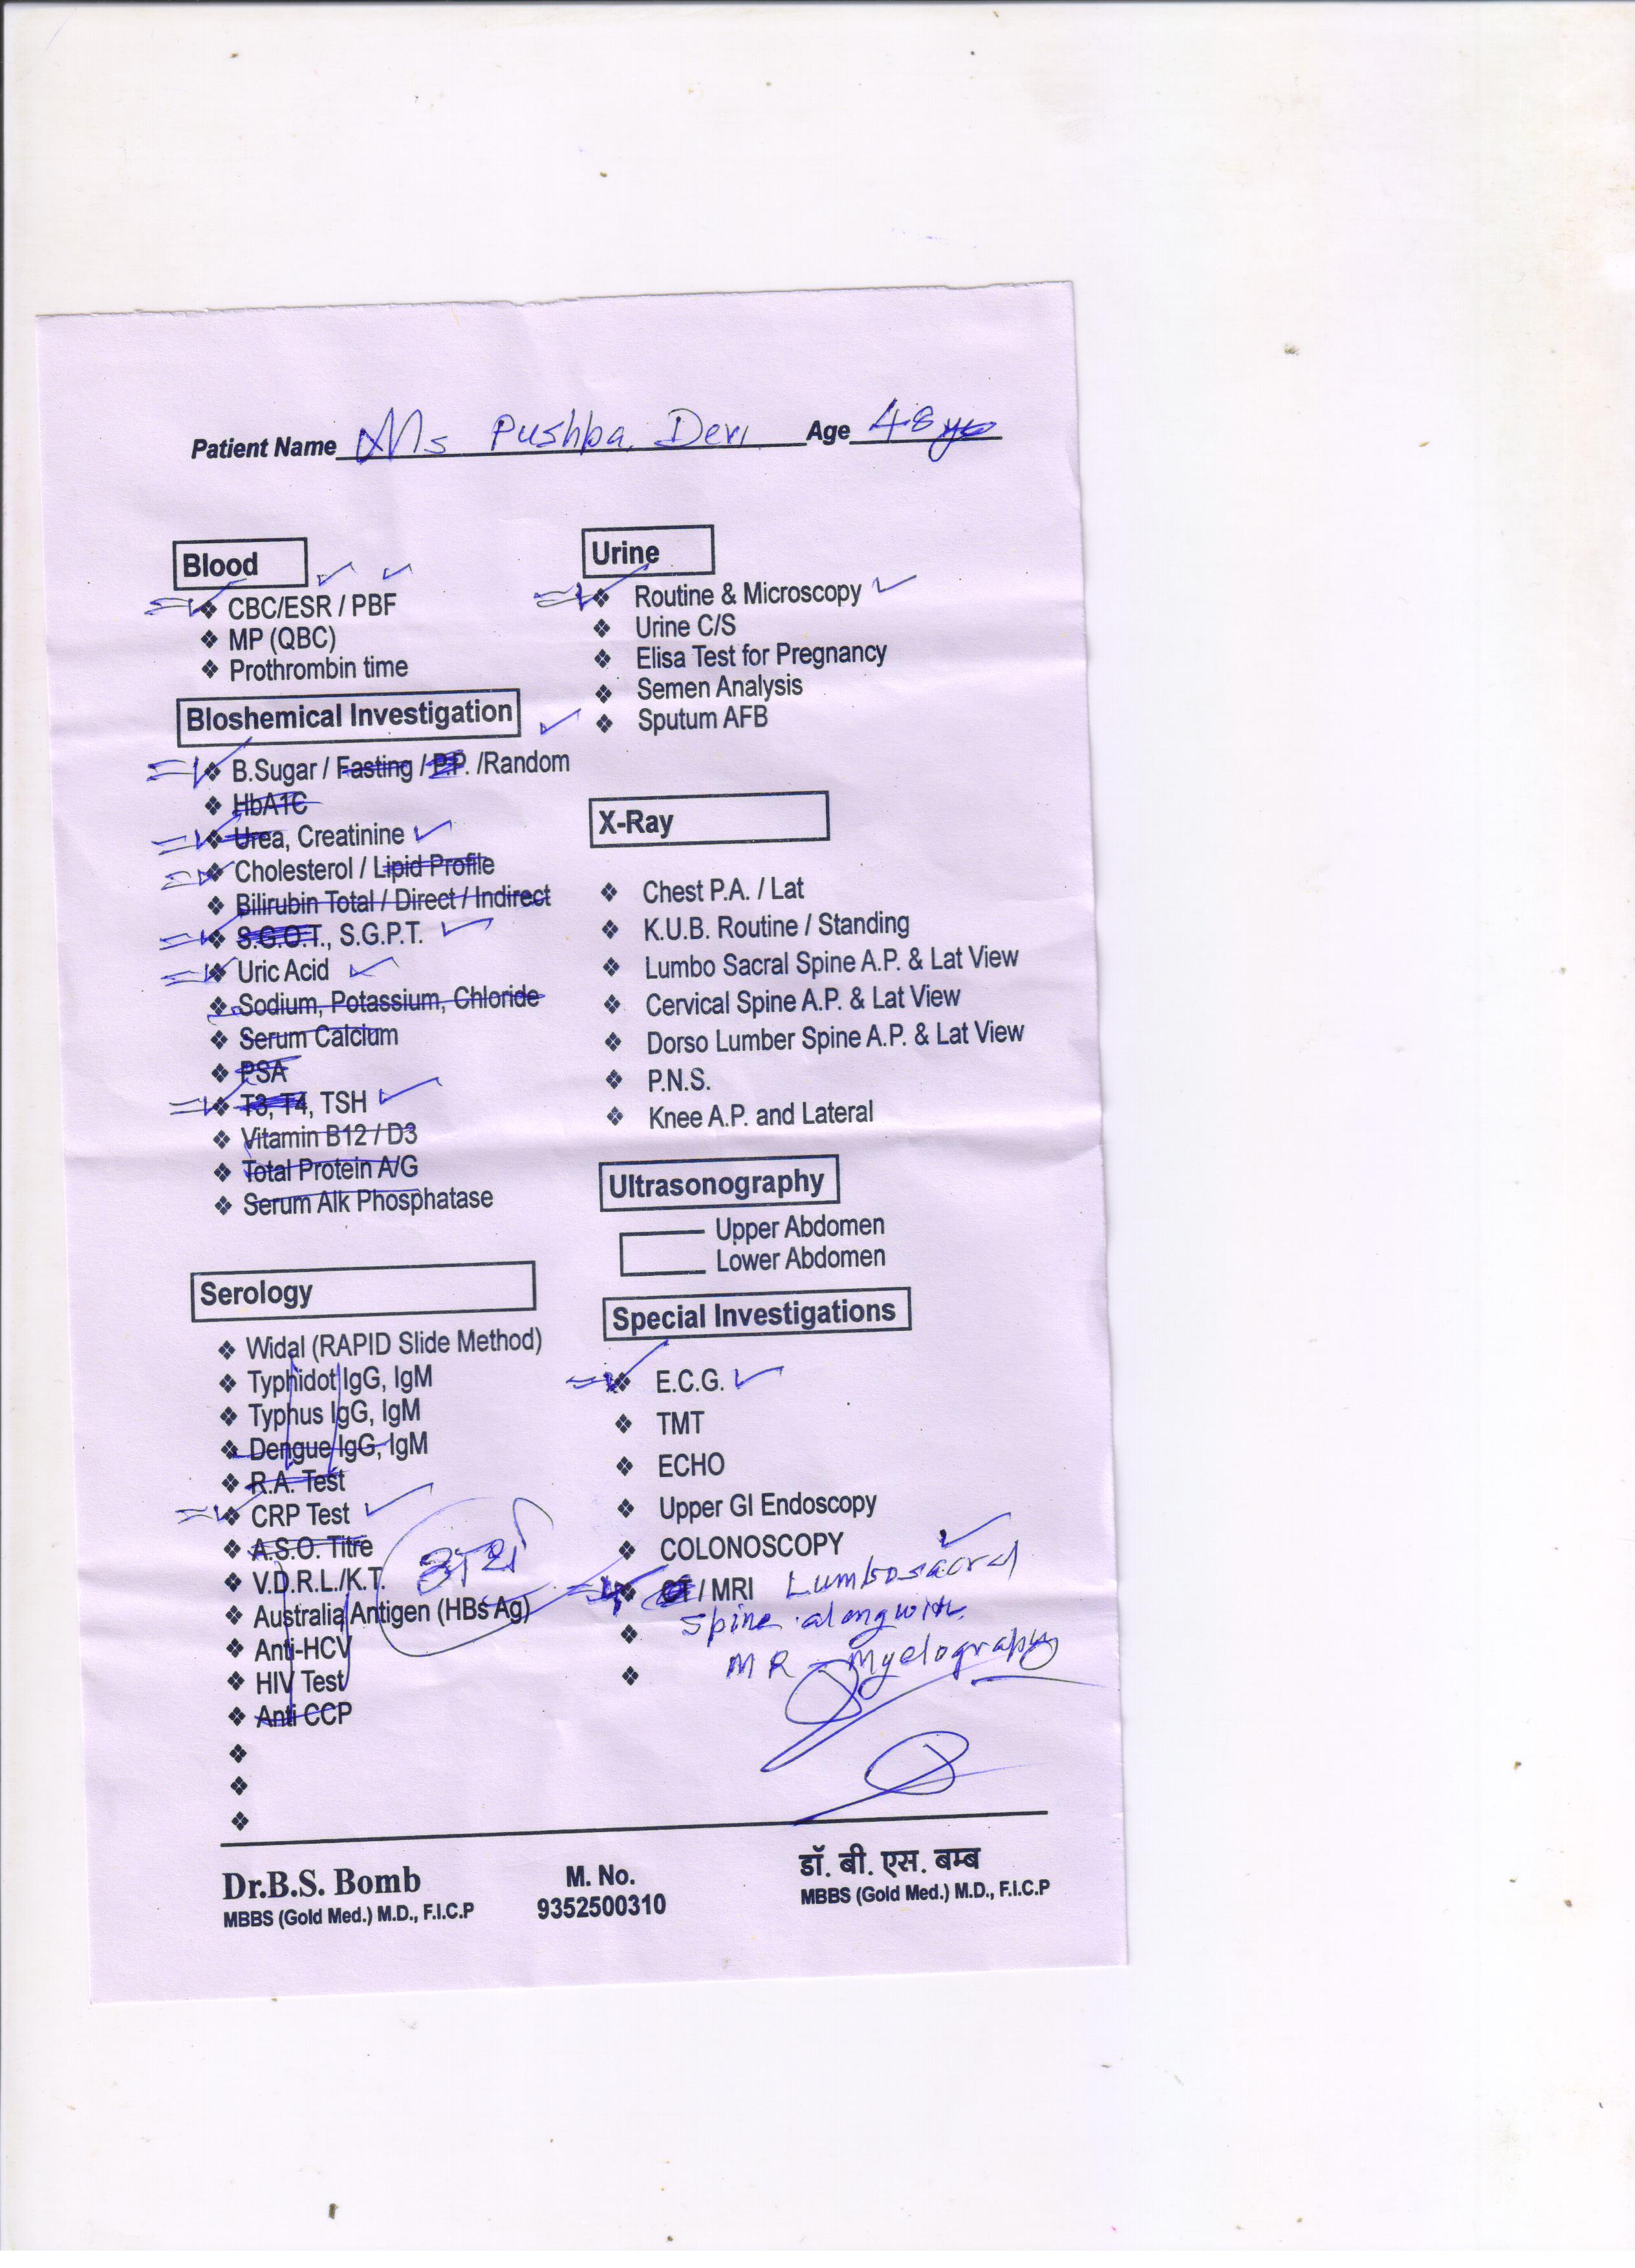 Patient Name Ms Pushpa Devi Age 48 yrs
Blood
CBC/ESR / PBF
MP (QBC)
Prothrombin time
Bloshemical Investigation
B.Sugar / Fasting / P.P. /Random
HbA1C
Urea, Creatinine
Cholesterol / Lipid Profile
Bilirubin Total / Direct / Indirect
S.G.O.T., S.G.P.T.
Uric Acid
Sodium, Potassium, Chloride
Serum Calcium
PSA
T3, T4, TSH
Vitamin B12 / D3
Total Protein A/G
Serum Alk Phosphatase
Serology
Widal (RAPID Slide Method)
Typhidot IgG, IgM
Typhus IgG, IgM
Dengue IgG, IgM
R.A. Test
CRP Test
A.S.O. Titre
V.D.R.L./K.T.
Australia Antigen (HBs Ag)
Anti-HCV
HIV Test
Anti CCP
Urine
Routine & Microscopy
Urine C/S
Elisa Test for Pregnancy
Semen Analysis
Sputum AFB
X-Ray
Chest P.A. / Lat
K.U.B. Routine / Standing
Lumbo Sacral Spine A.P. & Lat View
Cervical Spine A.P. & Lat View
Dorso Lumber Spine A.P. & Lat View
P.N.S.
Knee A.P. and Lateral
Ultrasonography
Upper Abdomen
Lower Abdomen
Special Investigations
E.C.G.
TMT
ECHO
Upper GI Endoscopy
COLONOSCOPY
CT / MRI Lumbosacral
Spine along with
MR - Myelography
Dr.B.S. Bomb
MBBS (Gold Med.) M.D., F.I.C.P
M. No.
9352500310
डॉ. बी. एस. बम्ब
MBBS (Gold Med.) M.D., F.I.C.P